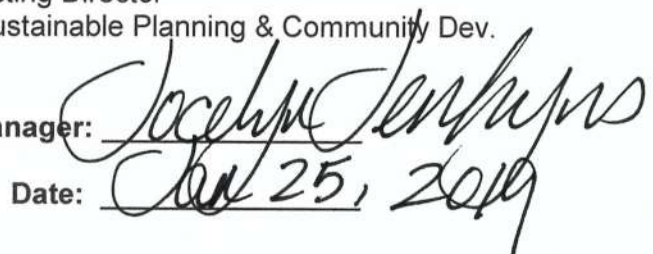 ting Director
ustainable Planning & Community Dev.
anager: Jocelyn Jenkyns
Date: Jan 25, 2019